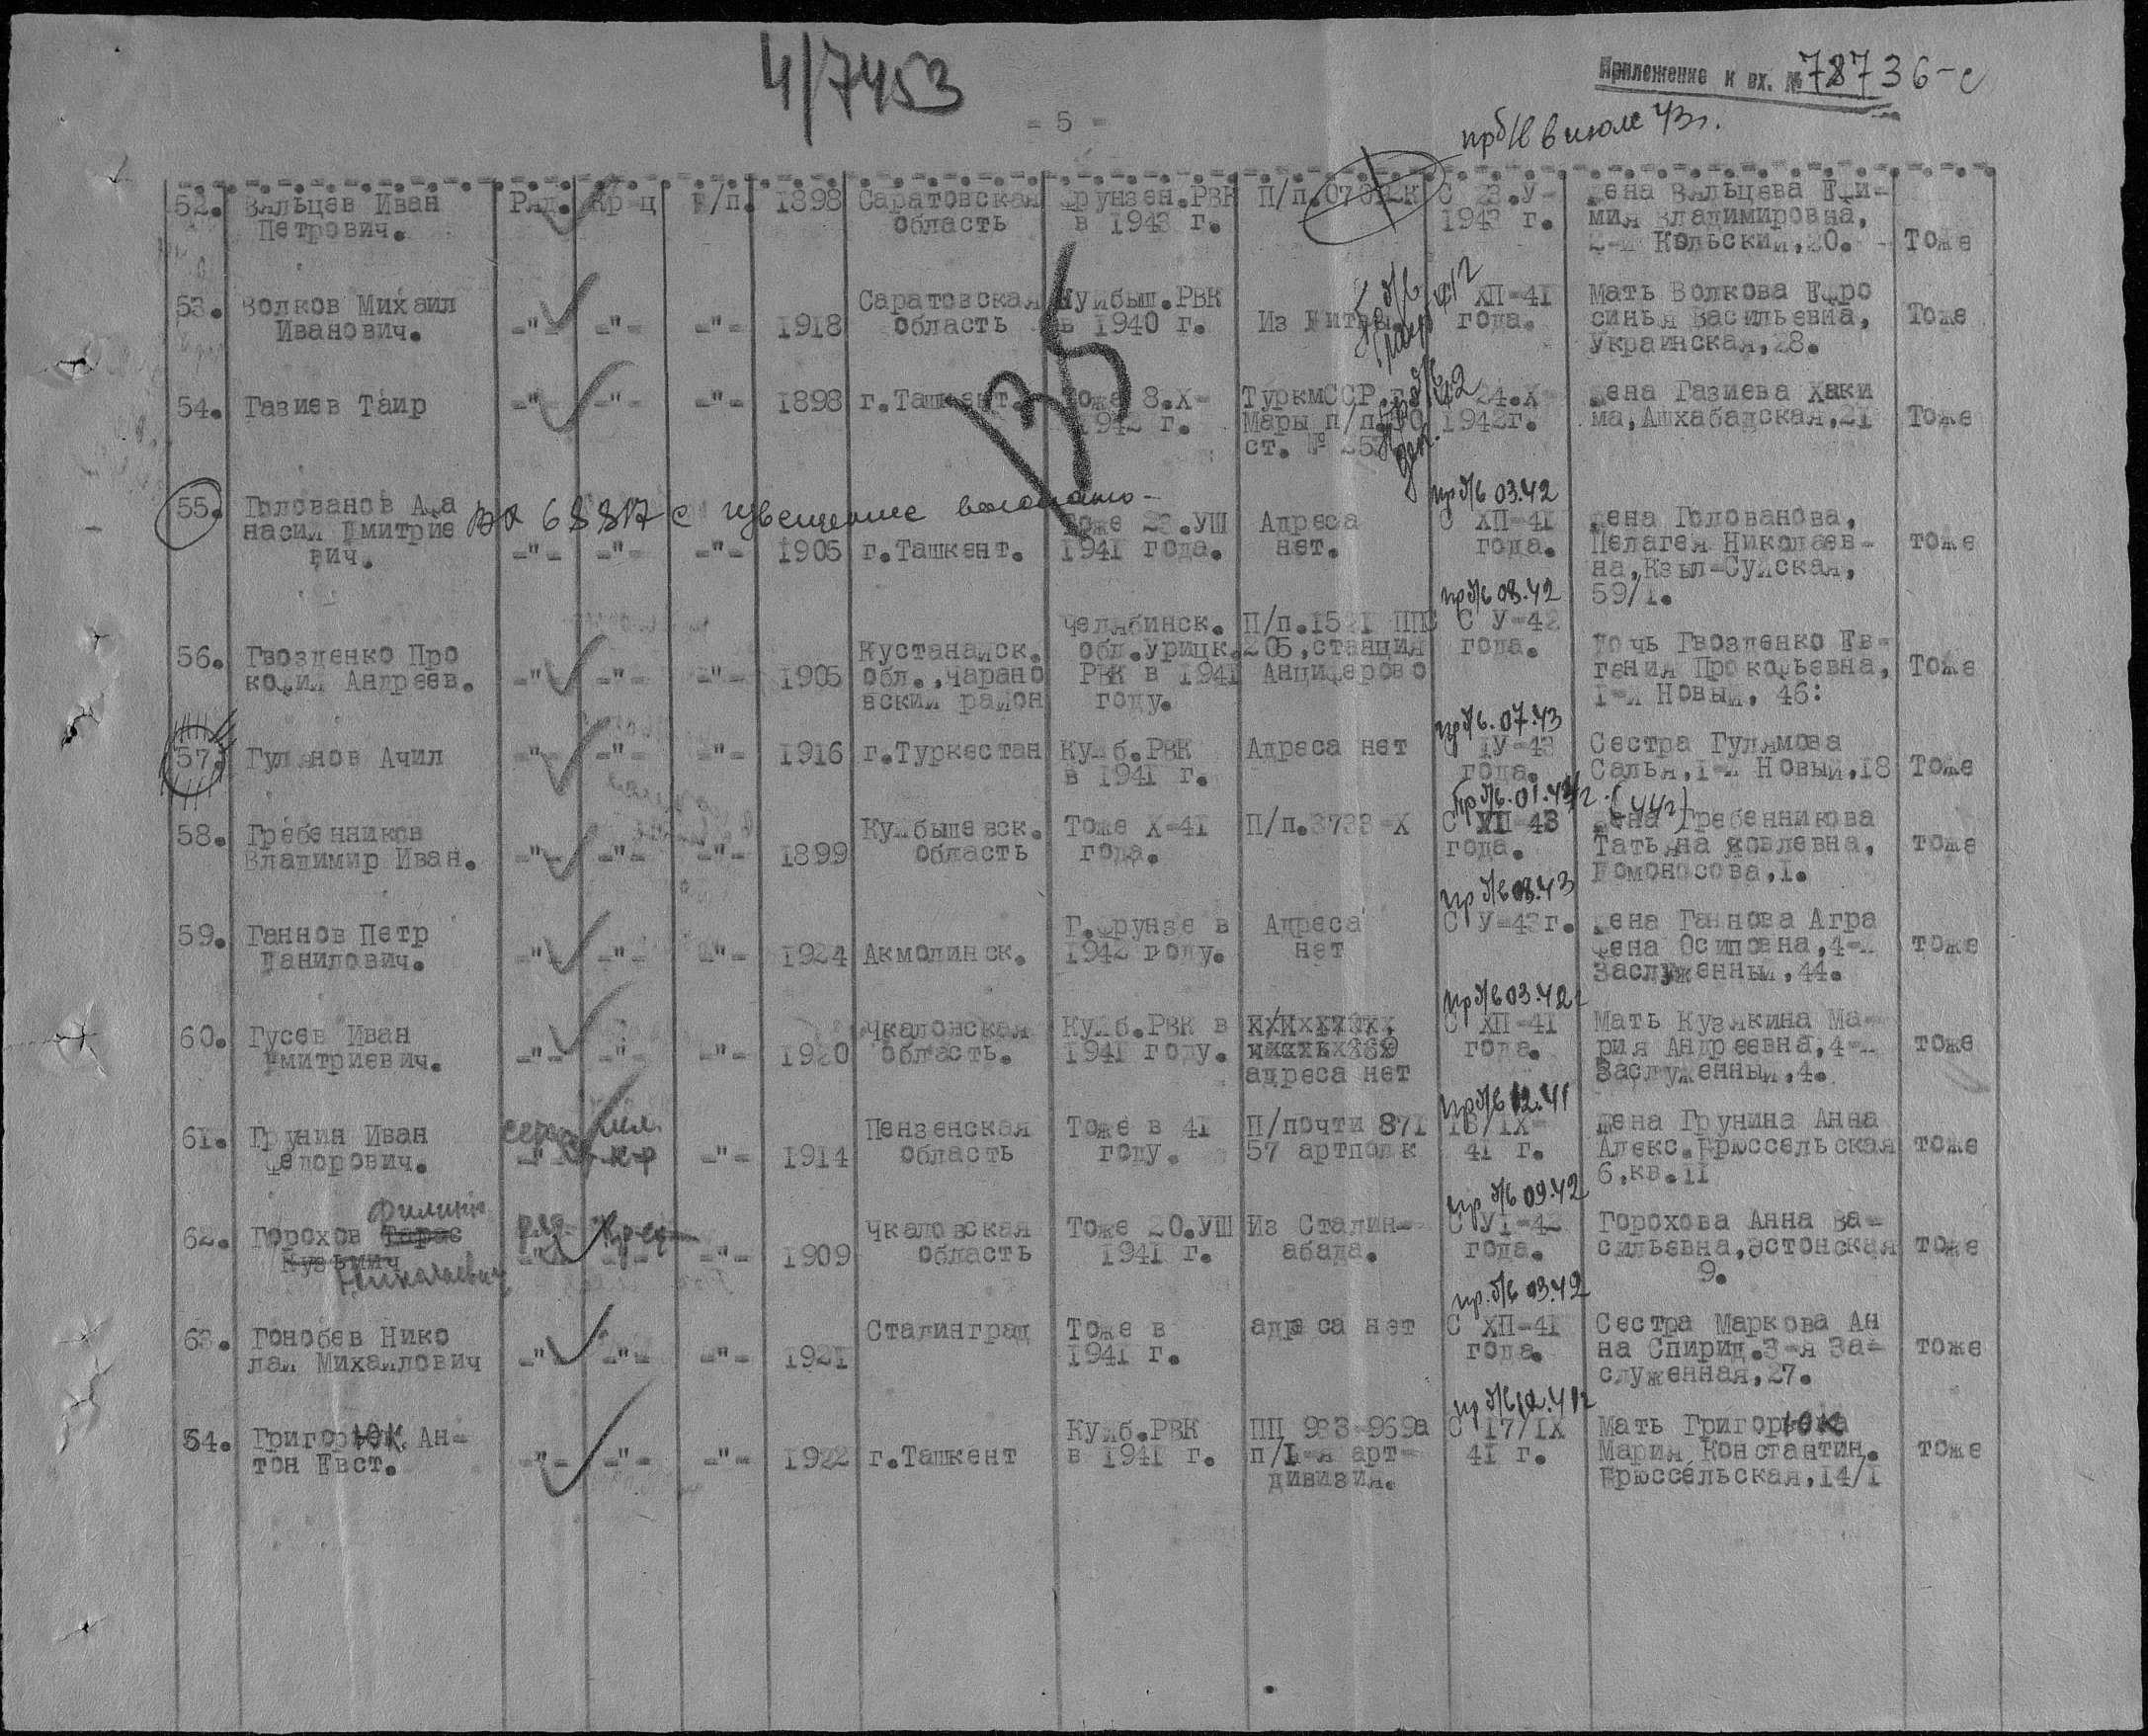 4/7453
Приложение к вх. № 78736-с
- 5 -
пр б/в в июле 43г.
52. Вяльцев Иван Петрович. Ряд. Кр-ц Б/п. 1898 Саратовская область Фрунзен.РВК в 1943 г. П/п. С 23.У-1943 г. Жена Вяльцева Ефимия Владимировна, 2-й Кольский,20. - Тоже
53. Волков Михаил Иванович. -"- -"- -"- 1918 Саратовская область Куйбыш.РВК в 1940 г. Из Литвы ХП-41 года. Мать Волкова Ефросинья Васильевна, Украинская,28. Тоже
135
54. Газиев Таир -"- -"- -"- 1898 г.Ташкент. Тоже 8.Х-1942 г. ТуркмССР.г. Мары п/п. ст. № 24.Х 1942г. Жена Газиева Хакима, Ашхабадская,21 Тоже
55. Голованов Афанасий Дмитриевич. вх 68817с извещение -"- -"- -"- 1905 г.Ташкент. Тоже 23.УШ 1941 года. Адреса нет. пр б/в 03.42 С ХП-41 года. Жена Голованова, Пелагея Николаевна, Кзыл-Суйская, 59/1. тоже
56. Гвозденко Прокофий Андреев. -"- -"- -"- 1905 Кустанайск. обл.,Чарановский район Челябинск. обл.Урицк. РВК в 1941 году. П/п.1521 ППС 205,станция Анциферово пр б/в 08.42 С У-42 года. Дочь Гвозденко Евгения Прокофьевна, 1-й Новый, 46: Тоже
57. Гулянов Ачил -"- -"- -"- 1916 г.Туркестан Куйб.РВК в 1941 г. Адреса нет пр б/в.07.43 1У-43 года. Сестра Гулямова Салья,1-й Новый,18 Тоже
58. Гребенников Владимир Иван. -"- -"- -"- 1899 Куйбышевск. область Тоже Х-41 года. П/п.3733-Х пр б/в.01.44г. (44г) С УП-43 года. Жена Гребенникова Татьяна Яковлевна, Ломоносова,1. тоже
59. Ганнов Петр Данилович. -"- -"- -"- 1924 Акмолинск. Г.Фрунзе в 1942 году. Адреса нет пр б/в 08.43 С У-43г. Жена Ганнова Аграфена Осиповна,4-й Заслуженный,44. тоже
60. Гусев Иван Дмитриевич. -"- -"- -"- 1920 Чкаловская область. Куйб.РВК в 1941 году. адреса нет пр б/в 03.42г С ХП-41 года. Мать Кузякина Мария Андреевна,4-й Заслуженный,4. тоже
61. Грунин Иван Федорович. серж. мл. к-р -"- -"- 1914 Пензенская область Тоже в 41 году. П/почти 871 57 артполк пр б/в 12.41 18/1Х-41 г. Жена Грунина Анна Алекс.Брюссельская 6,кв.11 тоже
62. Горохов Тарас Кузьмич Филипп Николаевич ряд. Кр-ец -"- -"- -"- 1909 Чкаловская область Тоже 20.УШ 1941 г. Из Сталинабада. пр б/в 09.42 С У1-42 года. Горохова Анна Васильевна,Эстонская 9. тоже
63. Гонобев Николай Михайлович -"- -"- -"- 1921 Сталинград Тоже в 1941 г. адреса нет пр. б/в 03.42 С ХП-41 года. Сестра Маркова Анна Спирид.3-я Заслуженная,27. тоже
64. Григорюк, Антон Евст. -"- -"- -"- 1922 г.Ташкент Куйб.РВК в 1941 г. ПП 983-969а п/1-я артдивизия. пр б/в 12.41г С 17/1Х 41 г. Мать Григорюк Мария Константин. Брюссельская,14/1 тоже